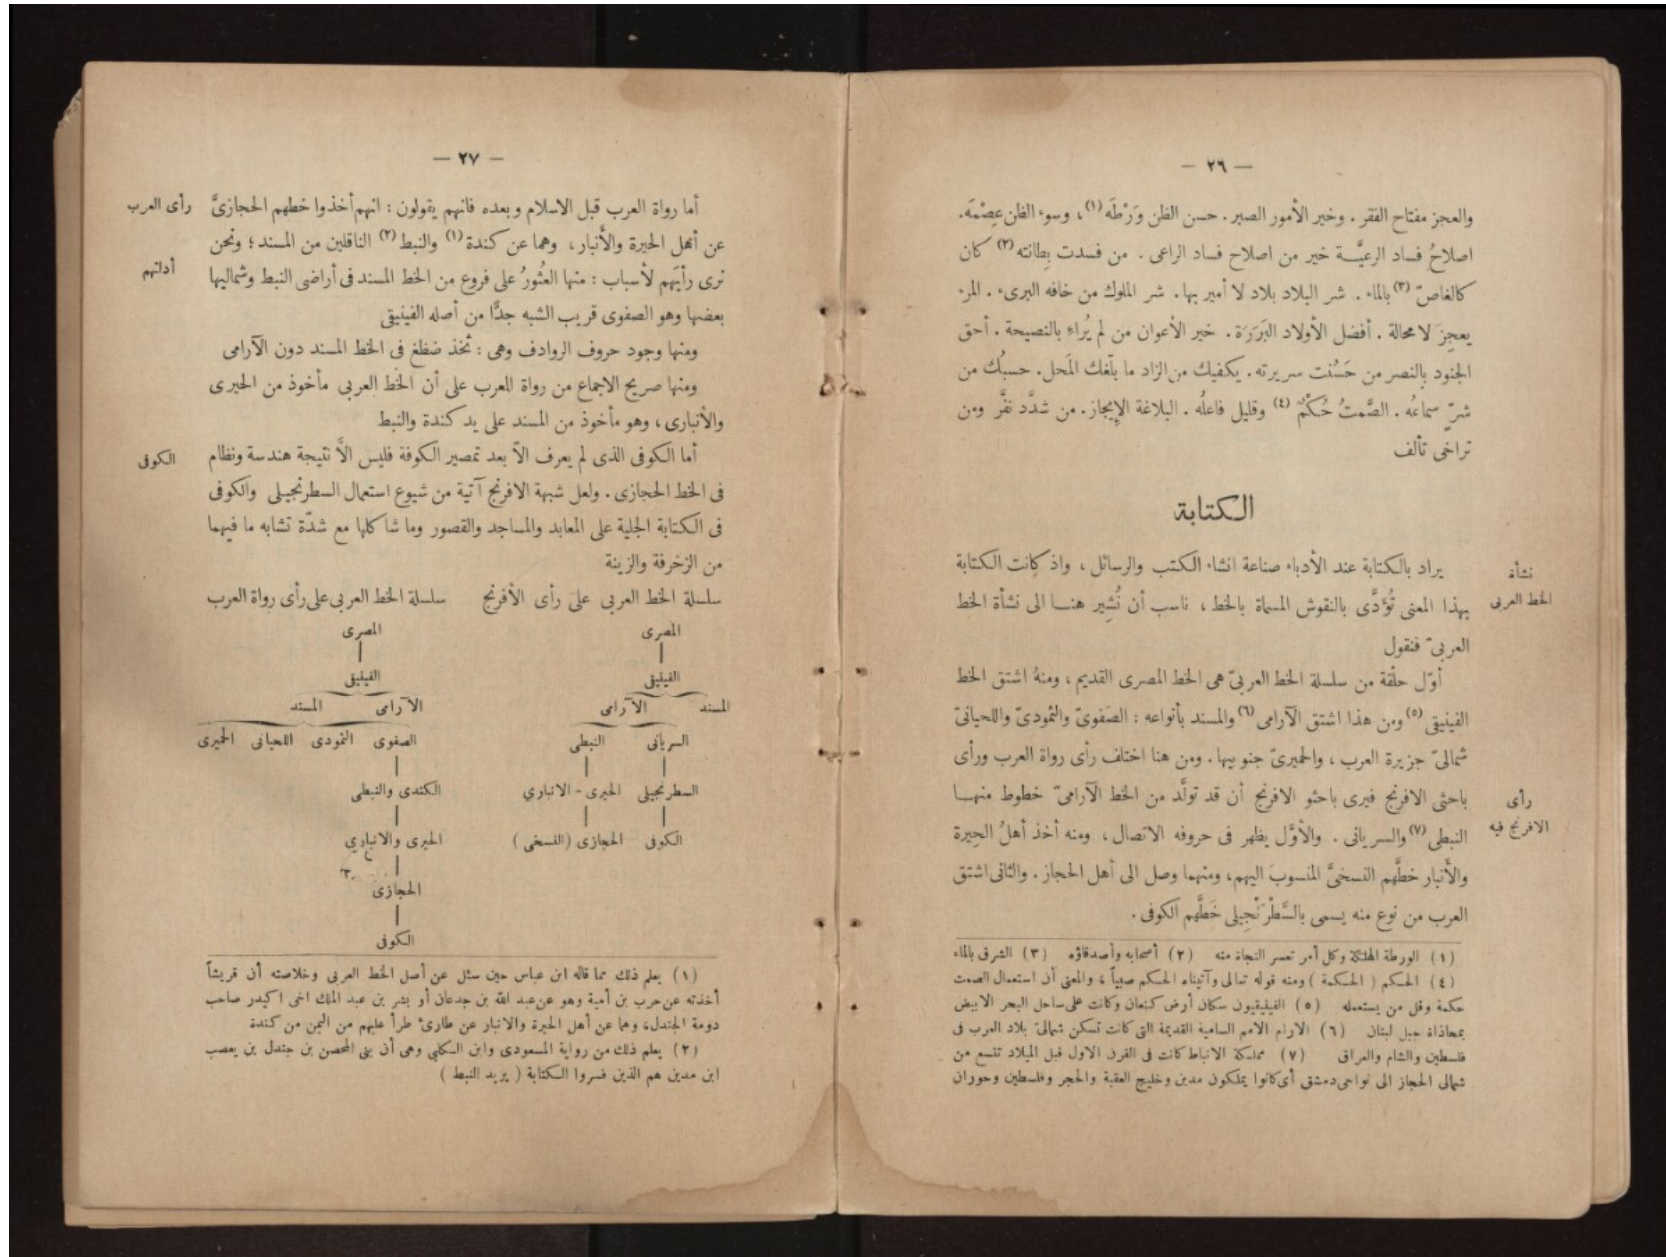 — ٢٦ —
والعجز مفتاح الفقر . وخير الأمور الصبر . حسن الظن وَرْطَه (١) ، وسوء الظن عِصْمَه.
اصلاحُ فساد الرعيَّة خير من اصلاح فساد الراعى . من فسدت بِطانته (٢) كان
كالغاصّ (٣) بالماء . شر البلاد بلاد لا أمير بها. شر الملوك من خافه البرىء . المرء
يعجِز لا محالة . أفضل الأولاد البَرَرَة . خير الأعوان من لم يُراءِ بالنصيحة . أحق
الجنود بالنصر من حَسُنت سريرته . يكفيك من الزاد ما بلَّغك المَحل . حسبُك من
شرٍّ سماعُه . الصَّمتُ حُكْمٌ (٤) وقليل فاعلُه . البلاغة الإيجاز . من شدَّد نفَّر ومن
تراخى تألف
الكتابة
نشأة
الخط العربى
يراد بالكتابة عند الأدباء صناعة انشاء الكتب والرسائل ، واذ كانت الكتابة
بهذا المعنى تُؤدَّى بالنقوش المسماة بالخط ، ناسب أن نُشِير هنا الى نشأة الخط
العربىّ فنقول
أوّل حلْقة من سلسلة الخط العربىّ هى الخط المصرى القديم ، ومنهُ اشتق الخط
الفينيقى (٥) ومن هذا اشتق الآرامى (٦) والمسند بأنواعه : الصَفوىّ والثمودىّ واللحيانىّ
شمالىّ جزيرة العرب ، والحميرىّ جنوبيها . ومن هنا اختلف رأى رواة العرب ورأى
رأى
الافرنج فيه
باحثى الافرنج فيرى باحثو الافرنج أن قد تولَّد من الخط الآرامىّ خطوط منهــا
النبطى (٧) والسريانى . والأوَّل يظهر فى حروفه الاتصال ، ومنه أخذ أهلُ الحِيرة
والأنبار خطَّهم النسخىَّ المنسوبَ اليهم، ومنهما وصل الى أهل الحجاز . والثانى اشتق
العرب من نوع منه يسمى بالسَّطْرَنْجِيلى خَطَّهم الكوفى .
(١) الورطة الهلكة وكل أمر تعسر النجاة منه (٢) أصحابه وأصدقاؤه (٣) الشرق بالماء
(٤) الحكم (الحكمة) ومنه قوله تعالى وآتيناه الحكم صبياً ، والمعنى أن استعمال الصمت
حكمة وقل من يستعمله (٥) الفينيقيون سكان أرض كنعان وكانت على ساحل البحر الابيض
بمحاذاة جبل لبنان (٦) الارام الامم السامية القديمة التى كانت تسكن شمالىّ بلاد العرب فى
فلسطين والشام والعراق (٧) مملكة الانباط كانت فى القرن الاول قبل الميلاد تتسع من
شمالى الحجاز الى نواحى دمشق أى كانوا يملكون مدين وخليج العقبة والحجر وفلسطين وحوران
— ٢٧ —
رأى العرب
أما رواة العرب قبل الاسلام وبعده فانهم يقولون : انهم أخذوا خطهم الحجازىَّ
عن أهل الحيرة والأَنبار ، وهما عن كندة (١) والنبط (٢) الناقلين من المسند ؛ ونحن
أدلتهم
نرى رأيَهم لأسباب : منها العثُورُ على فروع من الخط المسند فى أراضى النبط وشماليها
بعضها وهو الصفوى قريب الشبه جدًّا من أصله الفينيقى
ومنها وجود حروف الروادف وهى : ثخذ ضظغ فى الخط المسند دون الآرامى
ومنها صريح الاجماع من رواة العرب على أن الخط العربى مأخوذ من الحيرى
والأنبارى ، وهو مأخوذ من المسند على يد كندة والنبط
الكوفى
أما الكوفى الذى لم يعرف الاّ بعد تمصير الكوفة فليس الاَّ نتيجة هندسة ونظام
فى الخط الحجازى . ولعل شبهة الافرنج آتية من شيوع استعمال السطرنجيلى والكوفى
فى الكتابة الجلية على المعابد والمساجد والقصور وما شاكلها مع شدّة تشابه ما فيهما
من الزخرفة والزينة
سلسلة الخط العربى على رأى الأفرنج سلسلة الخط العربى على رأى رواة العرب
المصرى المصرى
الفينيقى الفينيقى
المسند الآرامى الآرامى المسند
السريانى النبطى الصفوى الثمودى اللحيانى الحميرى
السطرنجيلى الحيرى - الانبارى الكندى والنبطى
الكوفى الحجازى (النسخى) الحيرى والانبارى
الحجازى
الكوفى
(١) يعلم ذلك مما قاله ابن عباس حين سئل عن أصل الخط العربى وخلاصته أن قريشاً
أخذته عن حرب بن أمية وهو عن عبد الله بن جدعان أو بشر بن عبد الملك اخى اكيدر صاحب
دومة الجندل، وهما عن أهل الحيرة والانبار عن طارئ طرأ عليهم من اليمن من كندة
(٢) يعلم ذلك من رواية المسعودى وابن الكلبى وهى أن بنى المحصن بن جندل بن يعصب
ابن مدين هم الذين فسروا الكتابة (يريد النبط)